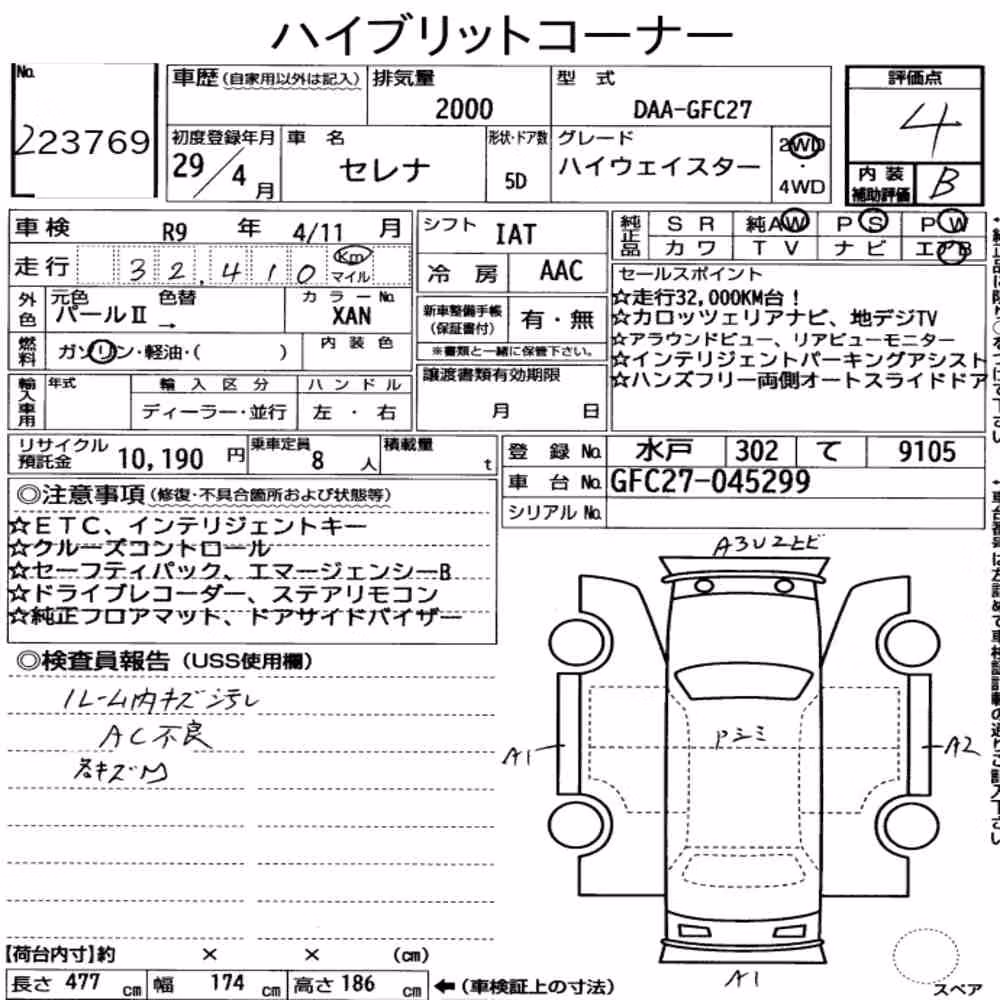 ハイブリットコーナー
No.
223769
車歴(自家用以外は記入)
排気量
2000
型 式
DAA-GFC27
評価点
4
初度登録年月
29/4月
車 名
セレナ
形状・ドア数
5D
グレード
ハイウェイスター
2WD
・
4WD
内 装
補助評価
B
車検 R9 年 4/11 月
走行 32,410 Km マイル
外色
元色 色替
パールⅡ →
カラーNo.
XAN
燃料
ガソリン・軽油・( )
内 装 色
輸入車用
年式
輸 入 区 分
ディーラー・並行
ハ ン ド ル
左 ・ 右
シフト IAT
冷 房 AAC
新車整備手帳
(保証書付)
有・無
※書類と一緒に保管下さい。
譲渡書類有効期限
月 日
純正品
S R 純AW P S P W
カ ワ T V ナ ビ エアB
セールスポイント
☆走行32,000KM台!
☆カロッツェリアナビ、地デジTV
☆アラウンドビュー、リアビューモニター
☆インテリジェントパーキングアシスト
☆ハンズフリー両側オートスライドドア
リサイクル
預託金
10,190 円
乗車定員
8 人
積載量
t
登 録 No. 水戸 302 て 9105
車 台 No. GFC27-045299
シリアル No.
◎注意事項(修復・不具合箇所および状態等)
☆ETC、インテリジェントキー
☆クルーズコントロール
☆セーフティパック、エマージェンシーB
☆ドライブレコーダー、ステアリモコン
☆純正フロアマット、ドアサイドバイザー
◎検査員報告(USS使用欄)
ルーム内キズ汚レ
AC不良
キズ
A3U2トビ
A1
Pシミ
A2
A1
スペア
【荷台内寸】約 × × (cm)
長さ 477 cm 幅 174 cm 高さ 186 cm ←(車検証上の寸法)